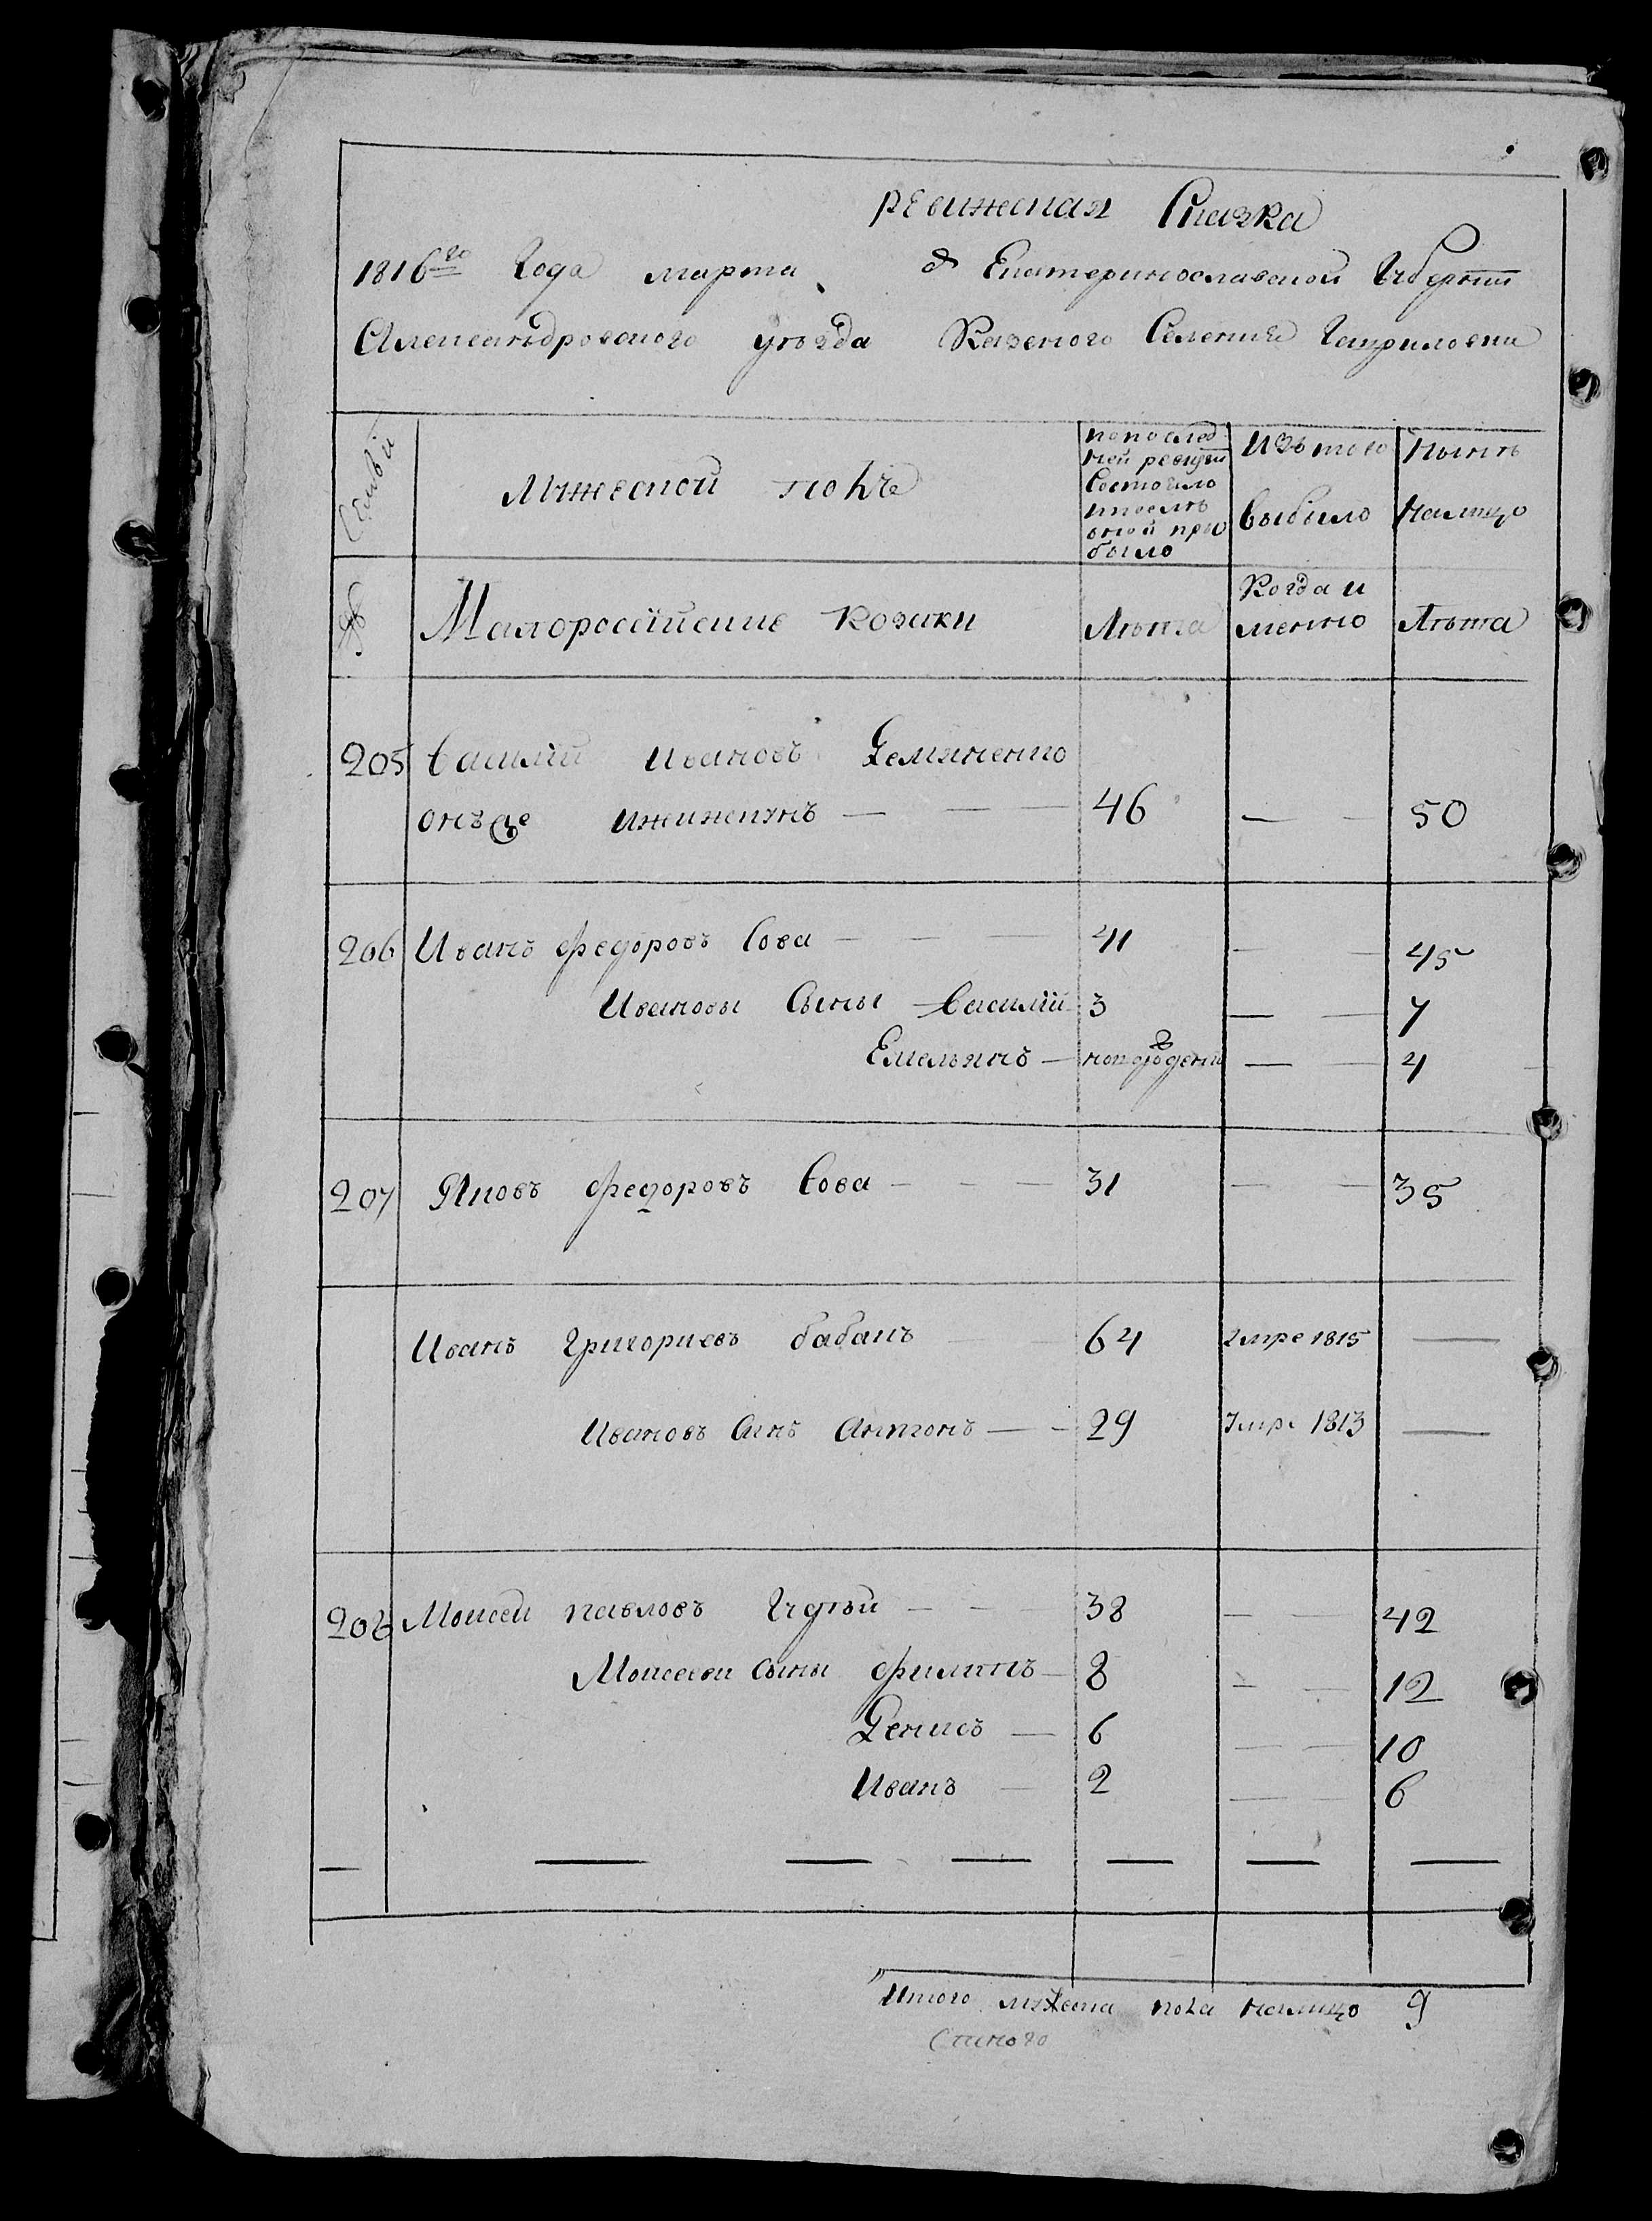 ревижская Сказка
1816го Года марта 8 Екатеринославской Губернии
Александровского уѣзда Казеного Селения Гавриловки
Семьи
Мужеской полъ
попослед
ней ревизии
Состояло
ипослѣ
оной при
было
Изътого
выбыло
Нынѣ
налицо
№
Малороссийские козаки
Лѣта
Когда и
менно
Лѣта
205 Василий Ивановъ Демяненко
онъже Ижижекунъ — — — 46 — — 50
206 Иванъ Федоровъ Сова — — — 41 — — 45
Ивановы Сыны Василий 3 — — 7
Емельянъ — — — 4
207 Яковъ Федоровъ Сова — — — 31 — — 35
Иванъ Григориевъ бабакъ — — 64 Умре 1815 —
Ивановъ Синъ Антонъ — — 29 Умре 1813 —
208 Моисей павловъ Гудзь — — 38 — — 42
Моисееви сыны Филипъ — 8 — — 12
Денисъ — 6 — — 10
Иванъ — 2 — — 6
Итого мужеска пола налицо 9